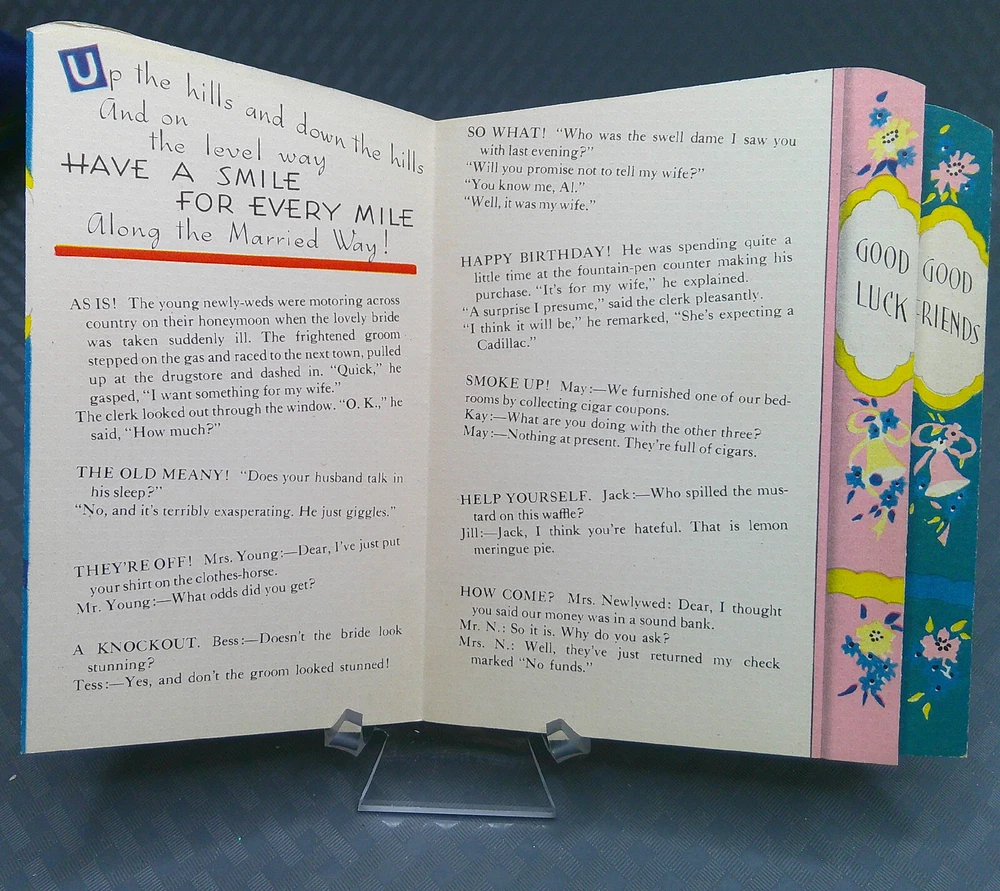 Up the hills and down the hills
And on
the level way
HAVE A SMILE
FOR EVERY MILE
Along the Married Way!
AS IS! The young newly-weds were motoring across
country on their honeymoon when the lovely bride
was taken suddenly ill. The frightened groom
stepped on the gas and raced to the next town, pulled
up at the drugstore and dashed in. "Quick," he
gasped, "I want something for my wife."
The clerk looked out through the window. "O. K.," he
said, "How much?"
THE OLD MEANY! "Does your husband talk in
his sleep?"
"No, and it's terribly exasperating. He just giggles."
THEY'RE OFF! Mrs. Young:—Dear, I've just put
your shirt on the clothes-horse.
Mr. Young:—What odds did you get?
A KNOCKOUT. Bess:—Doesn't the bride look
stunning?
Tess:—Yes, and don't the groom looked stunned!
SO WHAT! "Who was the swell dame I saw you
with last evening?"
"Will you promise not to tell my wife?"
"You know me, Al."
"Well, it was my wife."
HAPPY BIRTHDAY! He was spending quite a
little time at the fountain-pen counter making his
purchase. "It's for my wife," he explained.
"A surprise I presume," said the clerk pleasantly.
"I think it will be," he remarked, "She's expecting a
Cadillac."
SMOKE UP! May:—We furnished one of our bed-
rooms by collecting cigar coupons.
Kay:—What are you doing with the other three?
May:—Nothing at present. They're full of cigars.
HELP YOURSELF. Jack:—Who spilled the mus-
tard on this waffle?
Jill:—Jack, I think you're hateful. That is lemon
meringue pie.
HOW COME? Mrs. Newlywed: Dear, I thought
you said our money was in a sound bank.
Mr. N.: So it is. Why do you ask?
Mrs. N.: Well, they've just returned my check
marked "No funds."
GOOD
LUCK
GOOD
FRIENDS